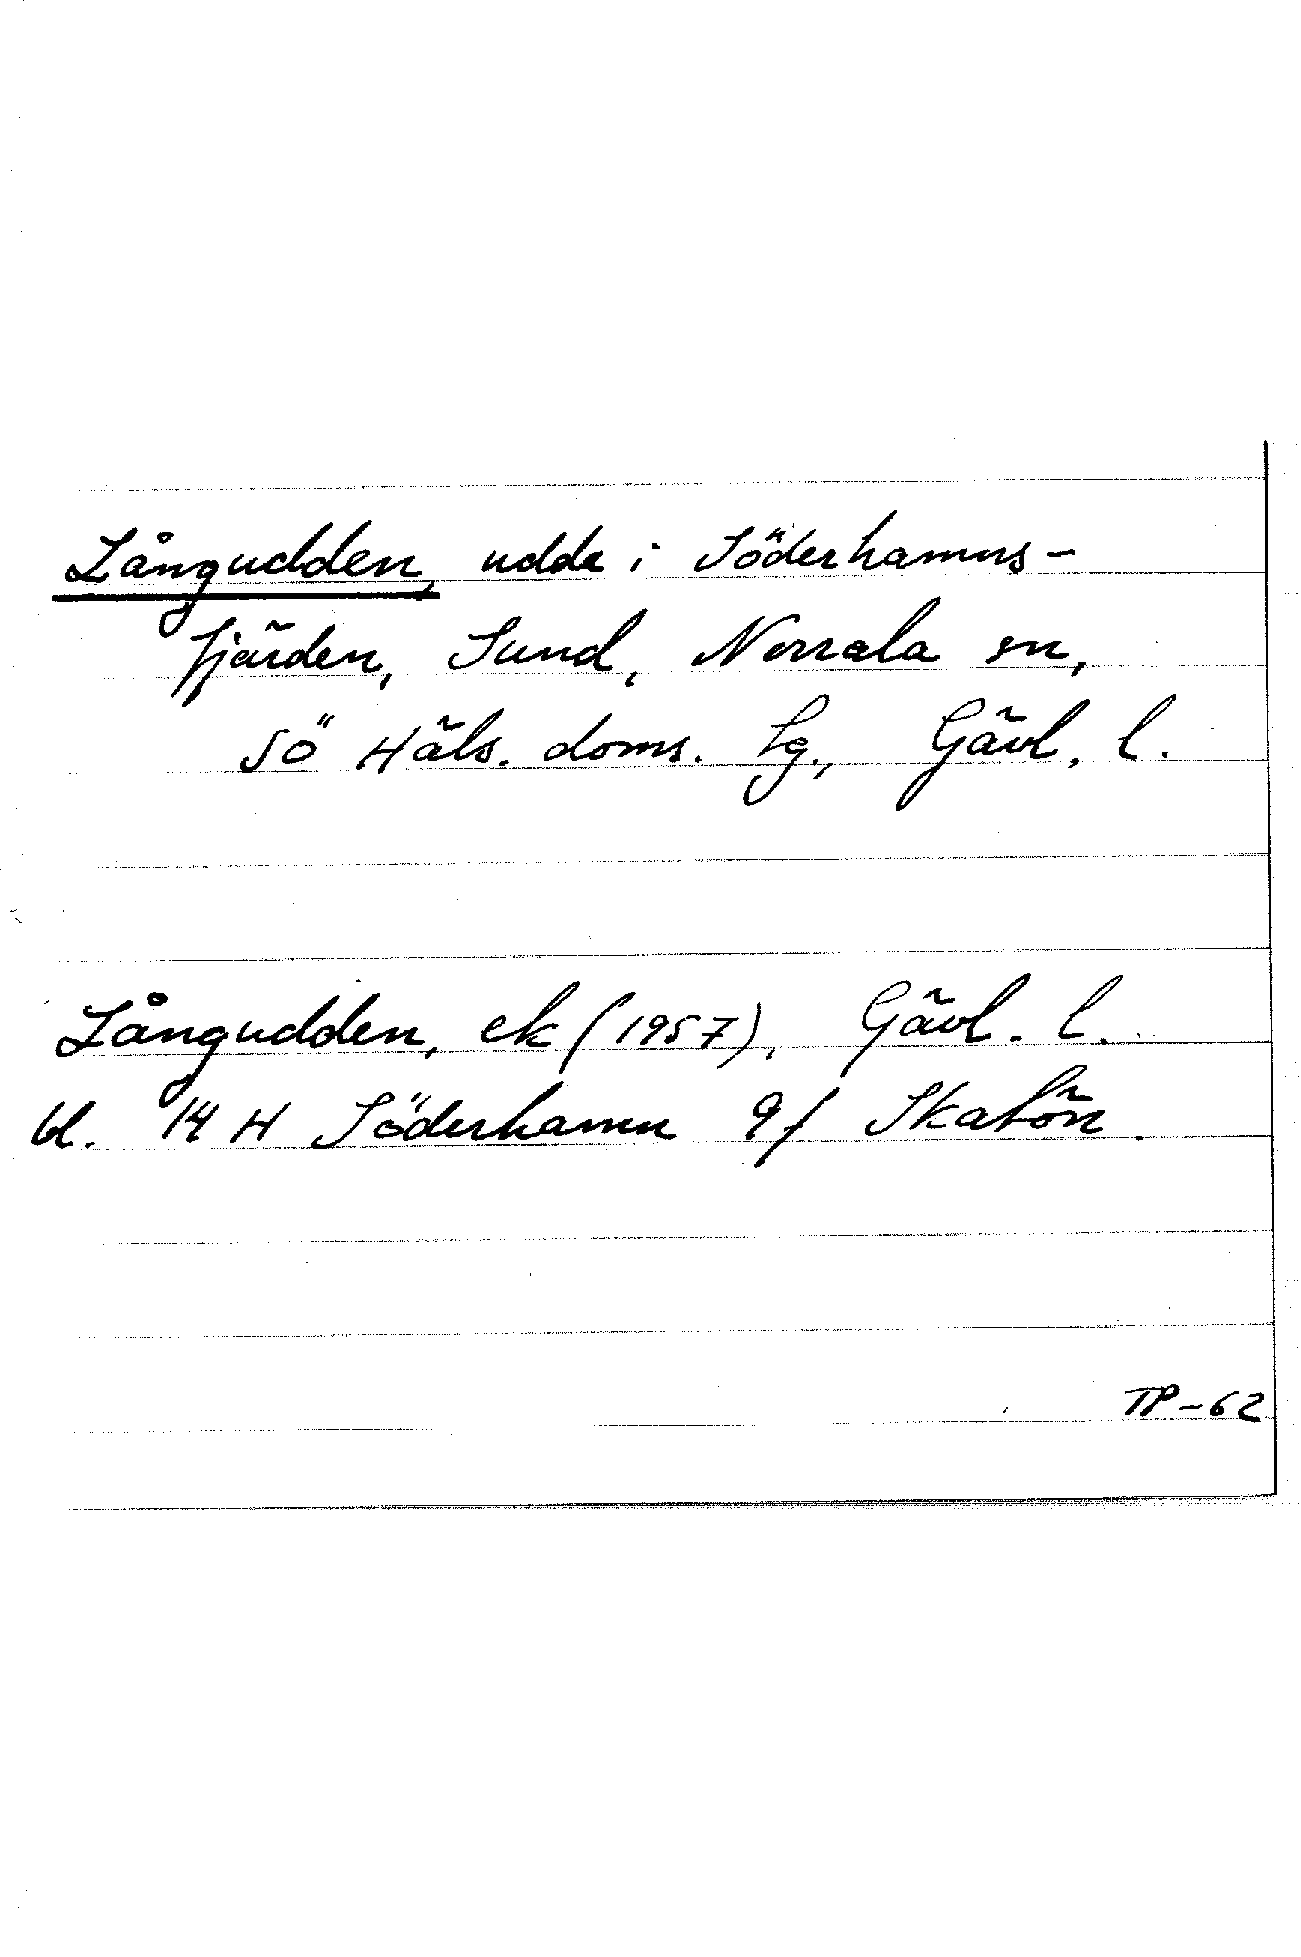 Långudden, udde i Söderhamns-
fjärden, Sund, Norrala sn,
Sö Häls. doms. lg., Gävl. l.
Långudden, ek (1957), Gävl. l.
bl. 14 H Söderhamn 9f Skatön.
TP-62